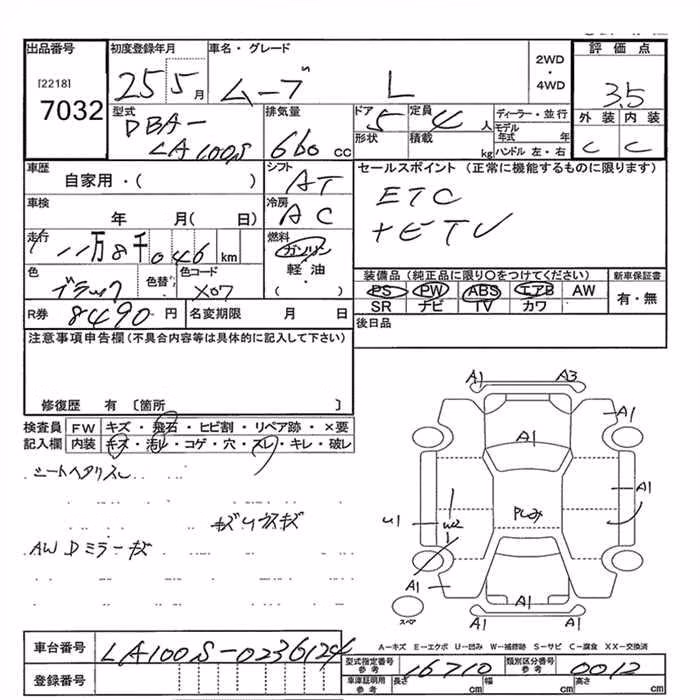 出品番号 初度登録年月 車名・グレード 2WD・4WD 評価点
[2218] 7032
25 5月 ムーブ L 3.5
型式 DBA-LA100S 排気量 660 cc ドア 5 形状 定員 4人 積載 kg ディーラー・並行 モデル年式 年 ハンドル 左・右
外装 内装
C C
車歴 自家用・( ) シフト AT セールスポイント (正常に機能するものに限ります)
冷房 AC ETC
車検 年 月( 日)
走行 11万8千046 km 燃料 ガソリン 軽油・( )
色 ブラック 色替 色コード X07
装備品 (純正品に限り○をつけてください) 新車保証書
PS PW ABS エアB AW 有・無
SR ナビ TV カワ
R券 8490円 名変期限 月 日 後日品
注意事項申告欄(不具合内容等は具体的に記入して下さい)
修復歴 有 〔箇所 〕
検査員 FW キズ・飛石・ヒビ割・リペア跡・×要
記入欄 内装 キズ・汚レ・コゲ・穴・スレ・キレ・破レ
シートヘタリスレ
AW Dミラーキズ
A1 A3
A1
A1
A1
U1 W2
A1
A1
A1 A1
スペア
A-キズ E-エクボ U-凹み W-補修跡 S-サビ C-腐食 XX-交換済
車台番号 LA100S-0236124
登録番号
型式指定番号 参考 16710 類別区分番号 参考 0012
車庫証明用 参考 長さ cm 幅 cm 高さ cm